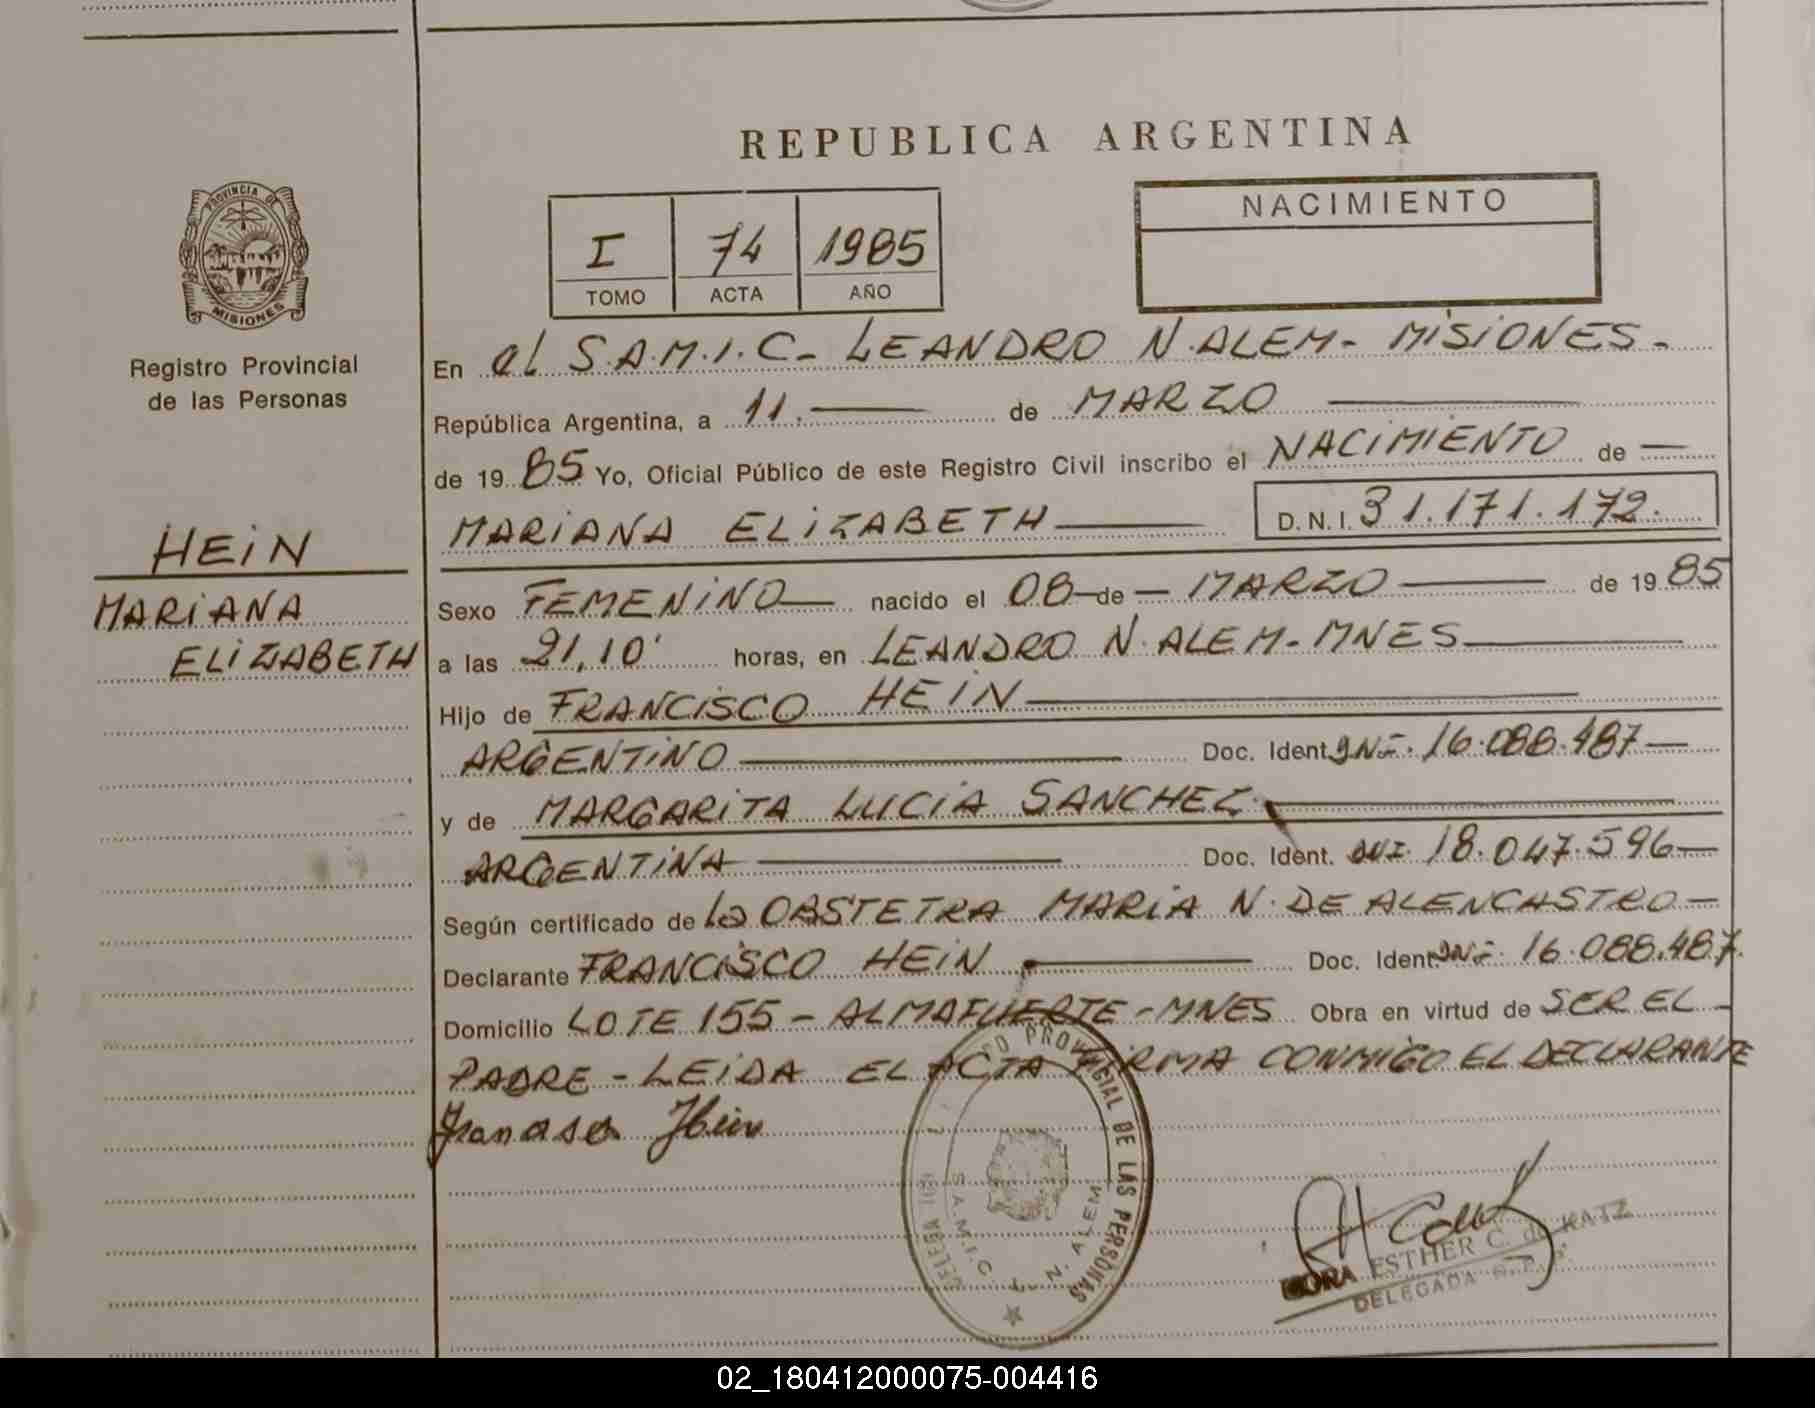 REPUBLICA ARGENTINA
PROVINCIA DE
MISIONES
Registro Provincial
de las Personas
HEIN
MARIANA
ELIZABETH
I 74 1985
TOMO ACTA AÑO
NACIMIENTO
En el S.A.M.I.C- LEANDRO N.ALEM- MISIONES-
República Argentina, a 11. de MARZO
de 1985 Yo, Oficial Público de este Registro Civil inscribo el NACIMIENTO de
MARIANA ELIZABETH D.N.I. 31.171.172.
Sexo FEMENINO nacido el 08 de MARZO de 1985
a las 21,10' horas, en LEANDRO N.ALEM-MNES
Hijo de FRANCISCO HEIN
ARGENTINO Doc. Ident. 16.088.487
y de MARGARITA LUCIA SANCHEZ
ARGENTINA Doc. Ident. DNI. 18.047.596
Según certificado de la OBSTETRA MARIA N. DE ALENCASTRO
Declarante FRANCISCO HEIN Doc. Ident. 16.088.487.
Domicilio LOTE 155 - ALMAFUERTE-MNES Obra en virtud de SER EL
PADRE - LEIDA EL ACTA FIRMA CONMIGO EL DECLARANTE
PROVINCIAL DE LAS PERSONAS
S.A.M.I.C L. N. ALEM
ESTHER C. de KATZ
DELEGADA R. P. P.
02_180412000075-004416